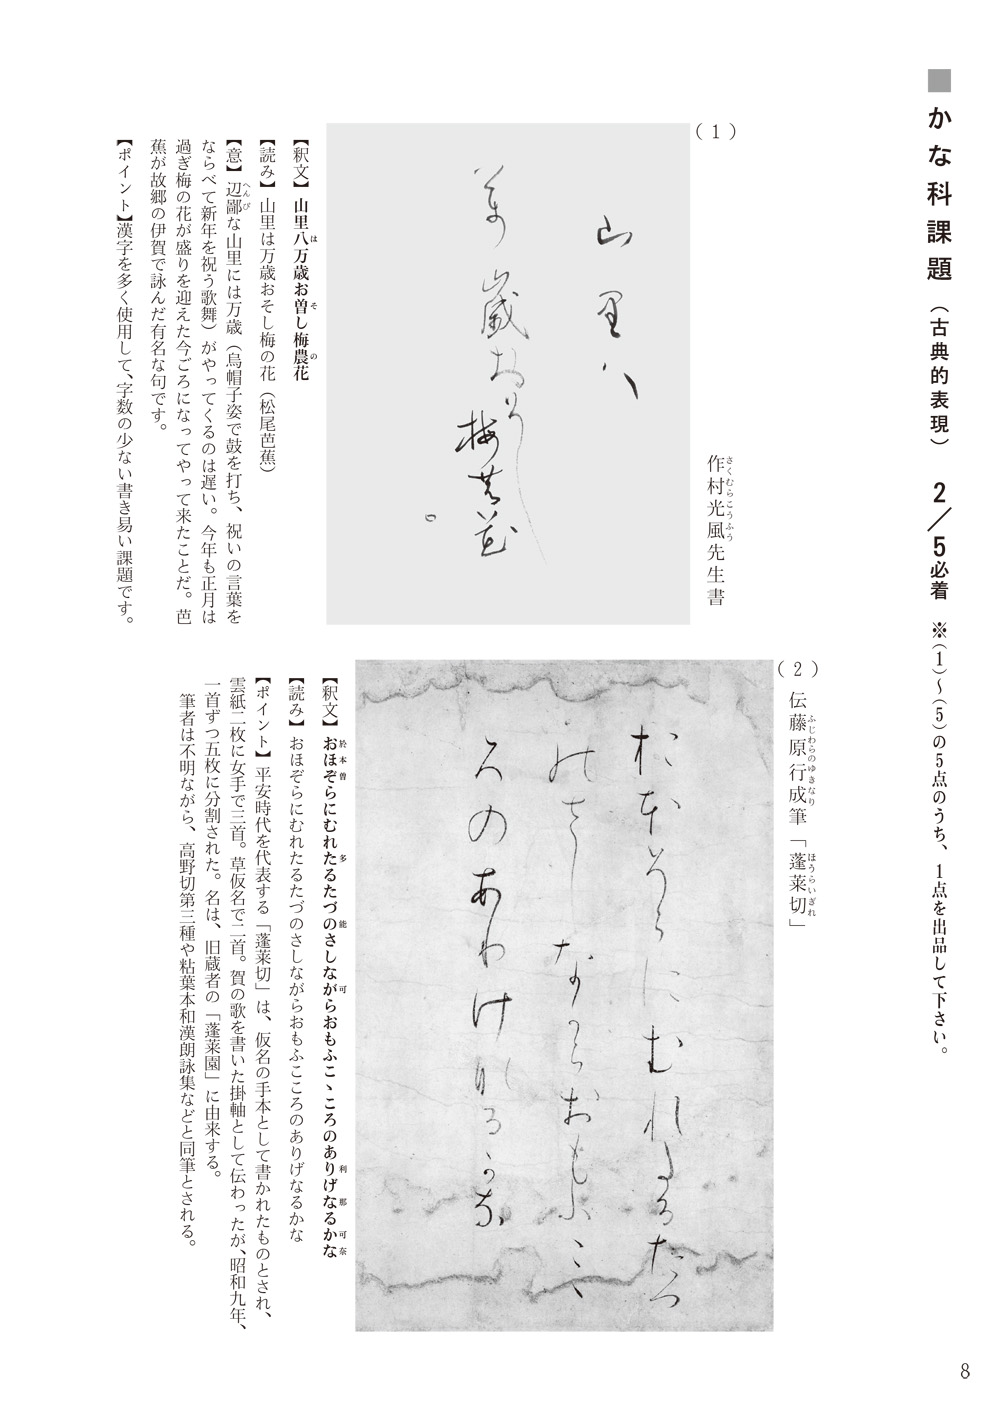 ■かな科課題（古典的表現）　2／5必着　※（1）～（5）の5点のうち、1点を出品して下さい。
（1）
作村光風先生書
さくむらこうふう
山里八
万歳お曽し
梅農花
【釈文】山里八万歳お曽し梅農花
は　そ　の
【読み】山里は万歳おそし梅の花（松尾芭蕉）
【意】辺鄙な山里には万歳（烏帽子姿で鼓を打ち、祝いの言葉を
へんぴ
ならべて新年を祝う歌舞）がやってくるのは遅い。今年も正月は
過ぎ梅の花が盛りを迎えた今ごろになってやって来たことだ。芭
蕉が故郷の伊賀で詠んだ有名な句です。
【ポイント】漢字を多く使用して、字数の少ない書き易い課題です。
（2）
伝藤原行成筆「蓬莱切」
ふじわらのゆきなり　ほうらいぎれ
おほそらにむれたるたつ
のさしなからおもふこゝ
ろのありけなるかな
【釈文】おほぞらにむれたるたづのさしながらおもふこゝころのありげなるかな
於本曽　多　能　可　利　那　可奈
【読み】おほぞらにむれたるたづのさしながらおもふこころのありげなるかな
【ポイント】平安時代を代表する「蓬莱切」は、仮名の手本として書かれたものとされ、
雲紙二枚に女手で三首。草仮名で二首。賀の歌を書いた掛軸として伝わったが、昭和九年、
一首ずつ五枚に分割された。名は、旧蔵者の「蓬莱園」に由来する。
筆者は不明ながら、高野切第三種や粘葉本和漢朗詠集などと同筆とされる。
8